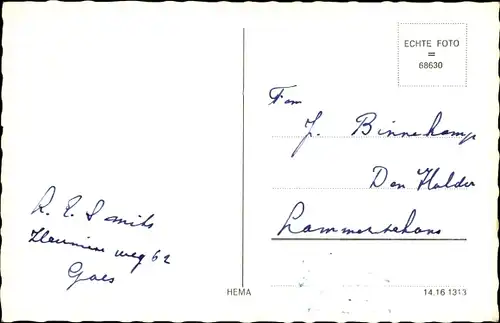 ECHTE FOTO
=
68630
Fam
J. Binnekamp
Den Helder
R. E. Smits
weg 62
Goes
HEMA
14.16 1313